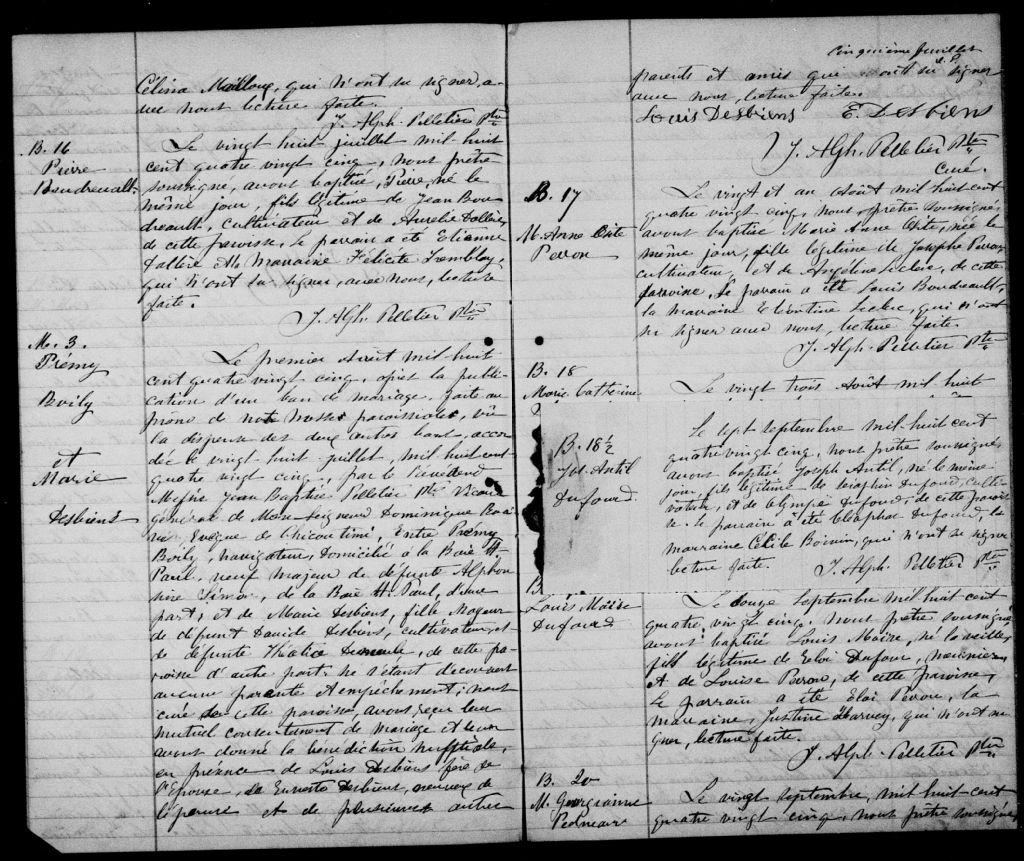 Célina Mailloux, qui n'ont su signer, a-
vec nous lecture faite.
J. Alph. Pelletier Ptre
B. 16
Pierre
Boudreault
Le vingt huit juillet mil huit
cent quatre vingt cinq, nous prêtre
soussigné, avons baptisé, Pierre, né le
même jour, fils légitime de Jean Bou
dreault, cultivateur et de Aurelie
de cette paroisse. Le parrain a été Etienne
et Marraine Félicité Tremblay,
qui n'ont su signer, avec nous, lecture
faite.
J. Alph. Pelletier Ptre
M. 3.
Prémy
Boily
et
Marie
Desbiens
Le premier Août mil huit
cent quatre vingt cinq, après la publi
cation d'un ban de mariage, faite au
prône de notre messe paroissiale, vu
la dispense des deux autres bans, accor
dée le vingt huit juillet, mil huit cent
quatre vingt cinq, par le Révérend
Messire Jean Baptiste Pelletier Ptre Vicaire
général de Monseigneur Dominique Raci
ne Evêque de Chicoutimi, Entre Prémy
Boily, navigateur, domicilié à la Baie St
Paul, neuf majeur de défunte Alphon
sine Simon, de la Baie St Paul, d'une
part, et de Marie Desbiens, fille Majeur
de défunt Davide Desbiens, cultivateur, et
de défunte de cette pa
roisse d'autre part; ne s'étant découvert
aucune parenté et empêchement; nous
curé de cette paroisse, avons reçu leur
mutuel consentement de Mariage et leur
avons donné la bénédiction nuptiale,
en présence de Louis Desbiens frère de
l'Epouse, de Erneste Desbiens, neuveu de
l'épouse et de plusieurs autres
cinquième feuillet
J. P.
parents et amis qui ont su signer
avec nous, lecture faite.
Louis Desbiens E. Desbiens
J. Alph. Pelletier Ptre
Curé.
B. 17
M. Anne Osite
Perron
Le vingt et un Août mil huit cent
quatre vingt cinq, nous prêtre soussigné,
avons baptisé Marie Anne Osite, née le
même jour, fille légitime de Josephe Perron
cultivateur, et de Angéline Leclerc, de cette
paroisse. Le parrain a été Louis Boudreault,
la marraine Leclerc, qui n'ont
su signer avec nous, lecture faite.
J. Alph. Pelletier Ptre
B. 18
Marie Catherine
Le vingt trois Août mil huit
B. 18½
Jos. Antil
Dufour
Le sept septembre mil huit cent
quatre vingt cinq, nous prêtre soussigné
avons baptisé Joseph Antil, né le même
jour fils légitime de Dufour, culti
vateur, et de Olympe Dufour, de cette parois
se. Le parrain a été Cléophas Dufour, la
marraine Cécile Boivin, qui n'ont su signer
lecture faite. J. Alph. Pelletier Ptre
B
Louis Moïse
Dufour
Le douze septembre mil huit cent
quatre vingt cinq, nous prêtre soussigné
avons baptisé Louis Moïse, né la veille,
fils légitime de Eloi Dufour, meunier,
et de Louise Perron, de cette paroisse,
le parrain a été Eloi Perron, la
marraine, Justine Harvey, qui n'ont su
gner, lecture faite.
J. Alph. Pelletier Ptre
B. 20
M. Georgianne
Pedneau
Le vingt septembre, mil huit cent
quatre vingt cinq, nous prêtre soussigné,